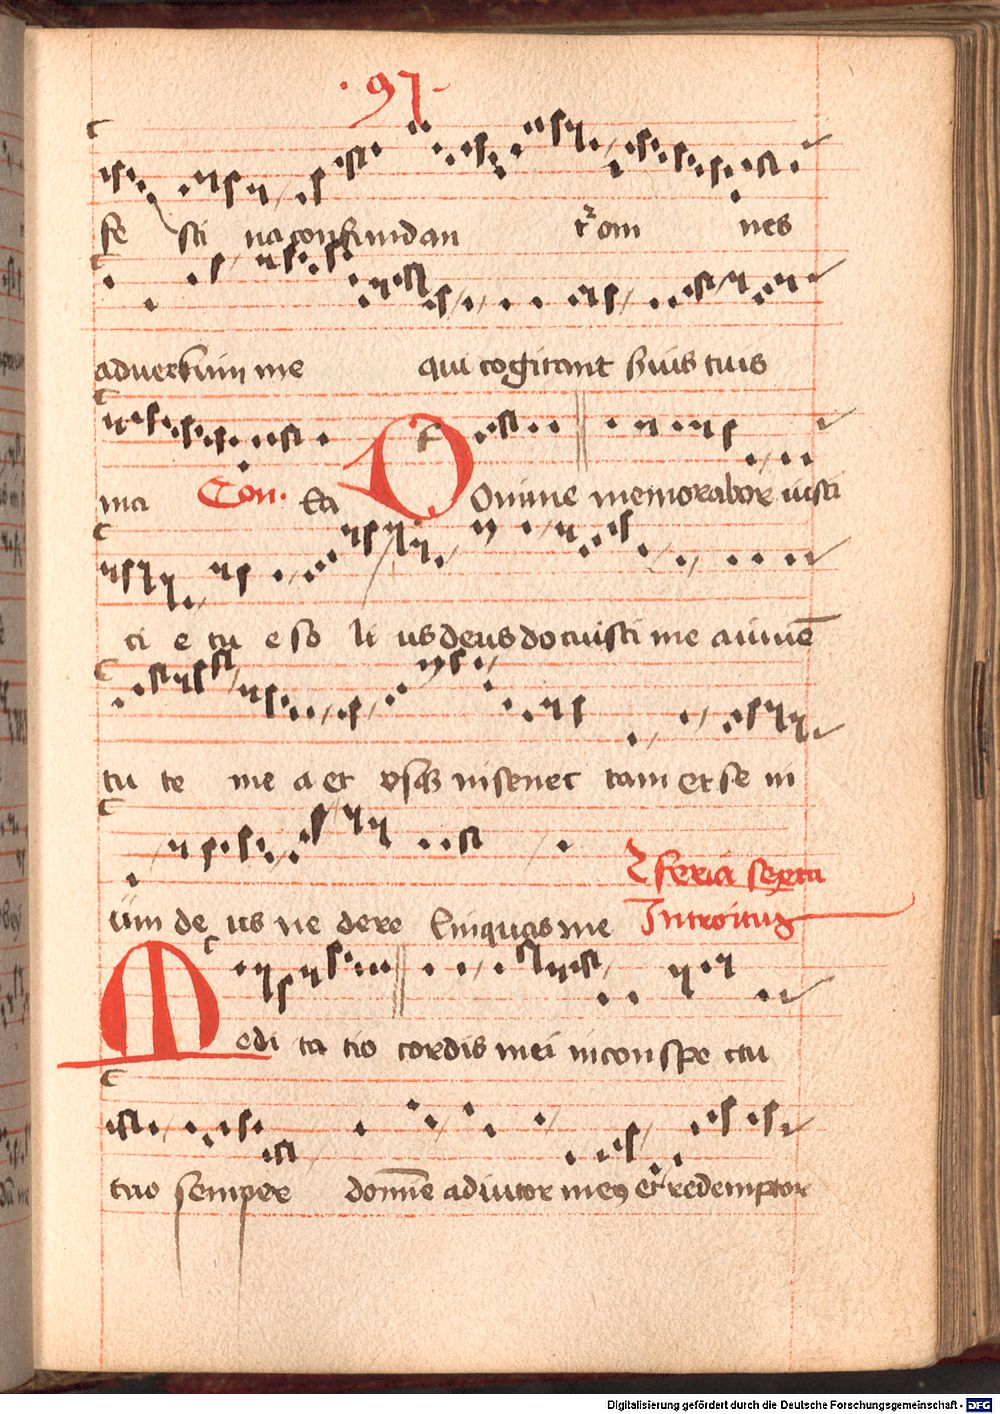 ·97·
fe sti na confundan tr om nes
adversum me qui cogitant suis tuis
ma Con. Ea Domine memorabor iusti
ci e tu e so li us deus docuisti me a iuuē
tu te me a et usqʒ in senec tam et se ni
um de us ne dere linquas me feria sexta
Introitus
Medi ta tio cordis mei in conspe ctu
tuo semper domīe adiutor meꝰ et redemptor
Digitalisierung gefördert durch die Deutsche Forschungsgemeinschaft - DFG